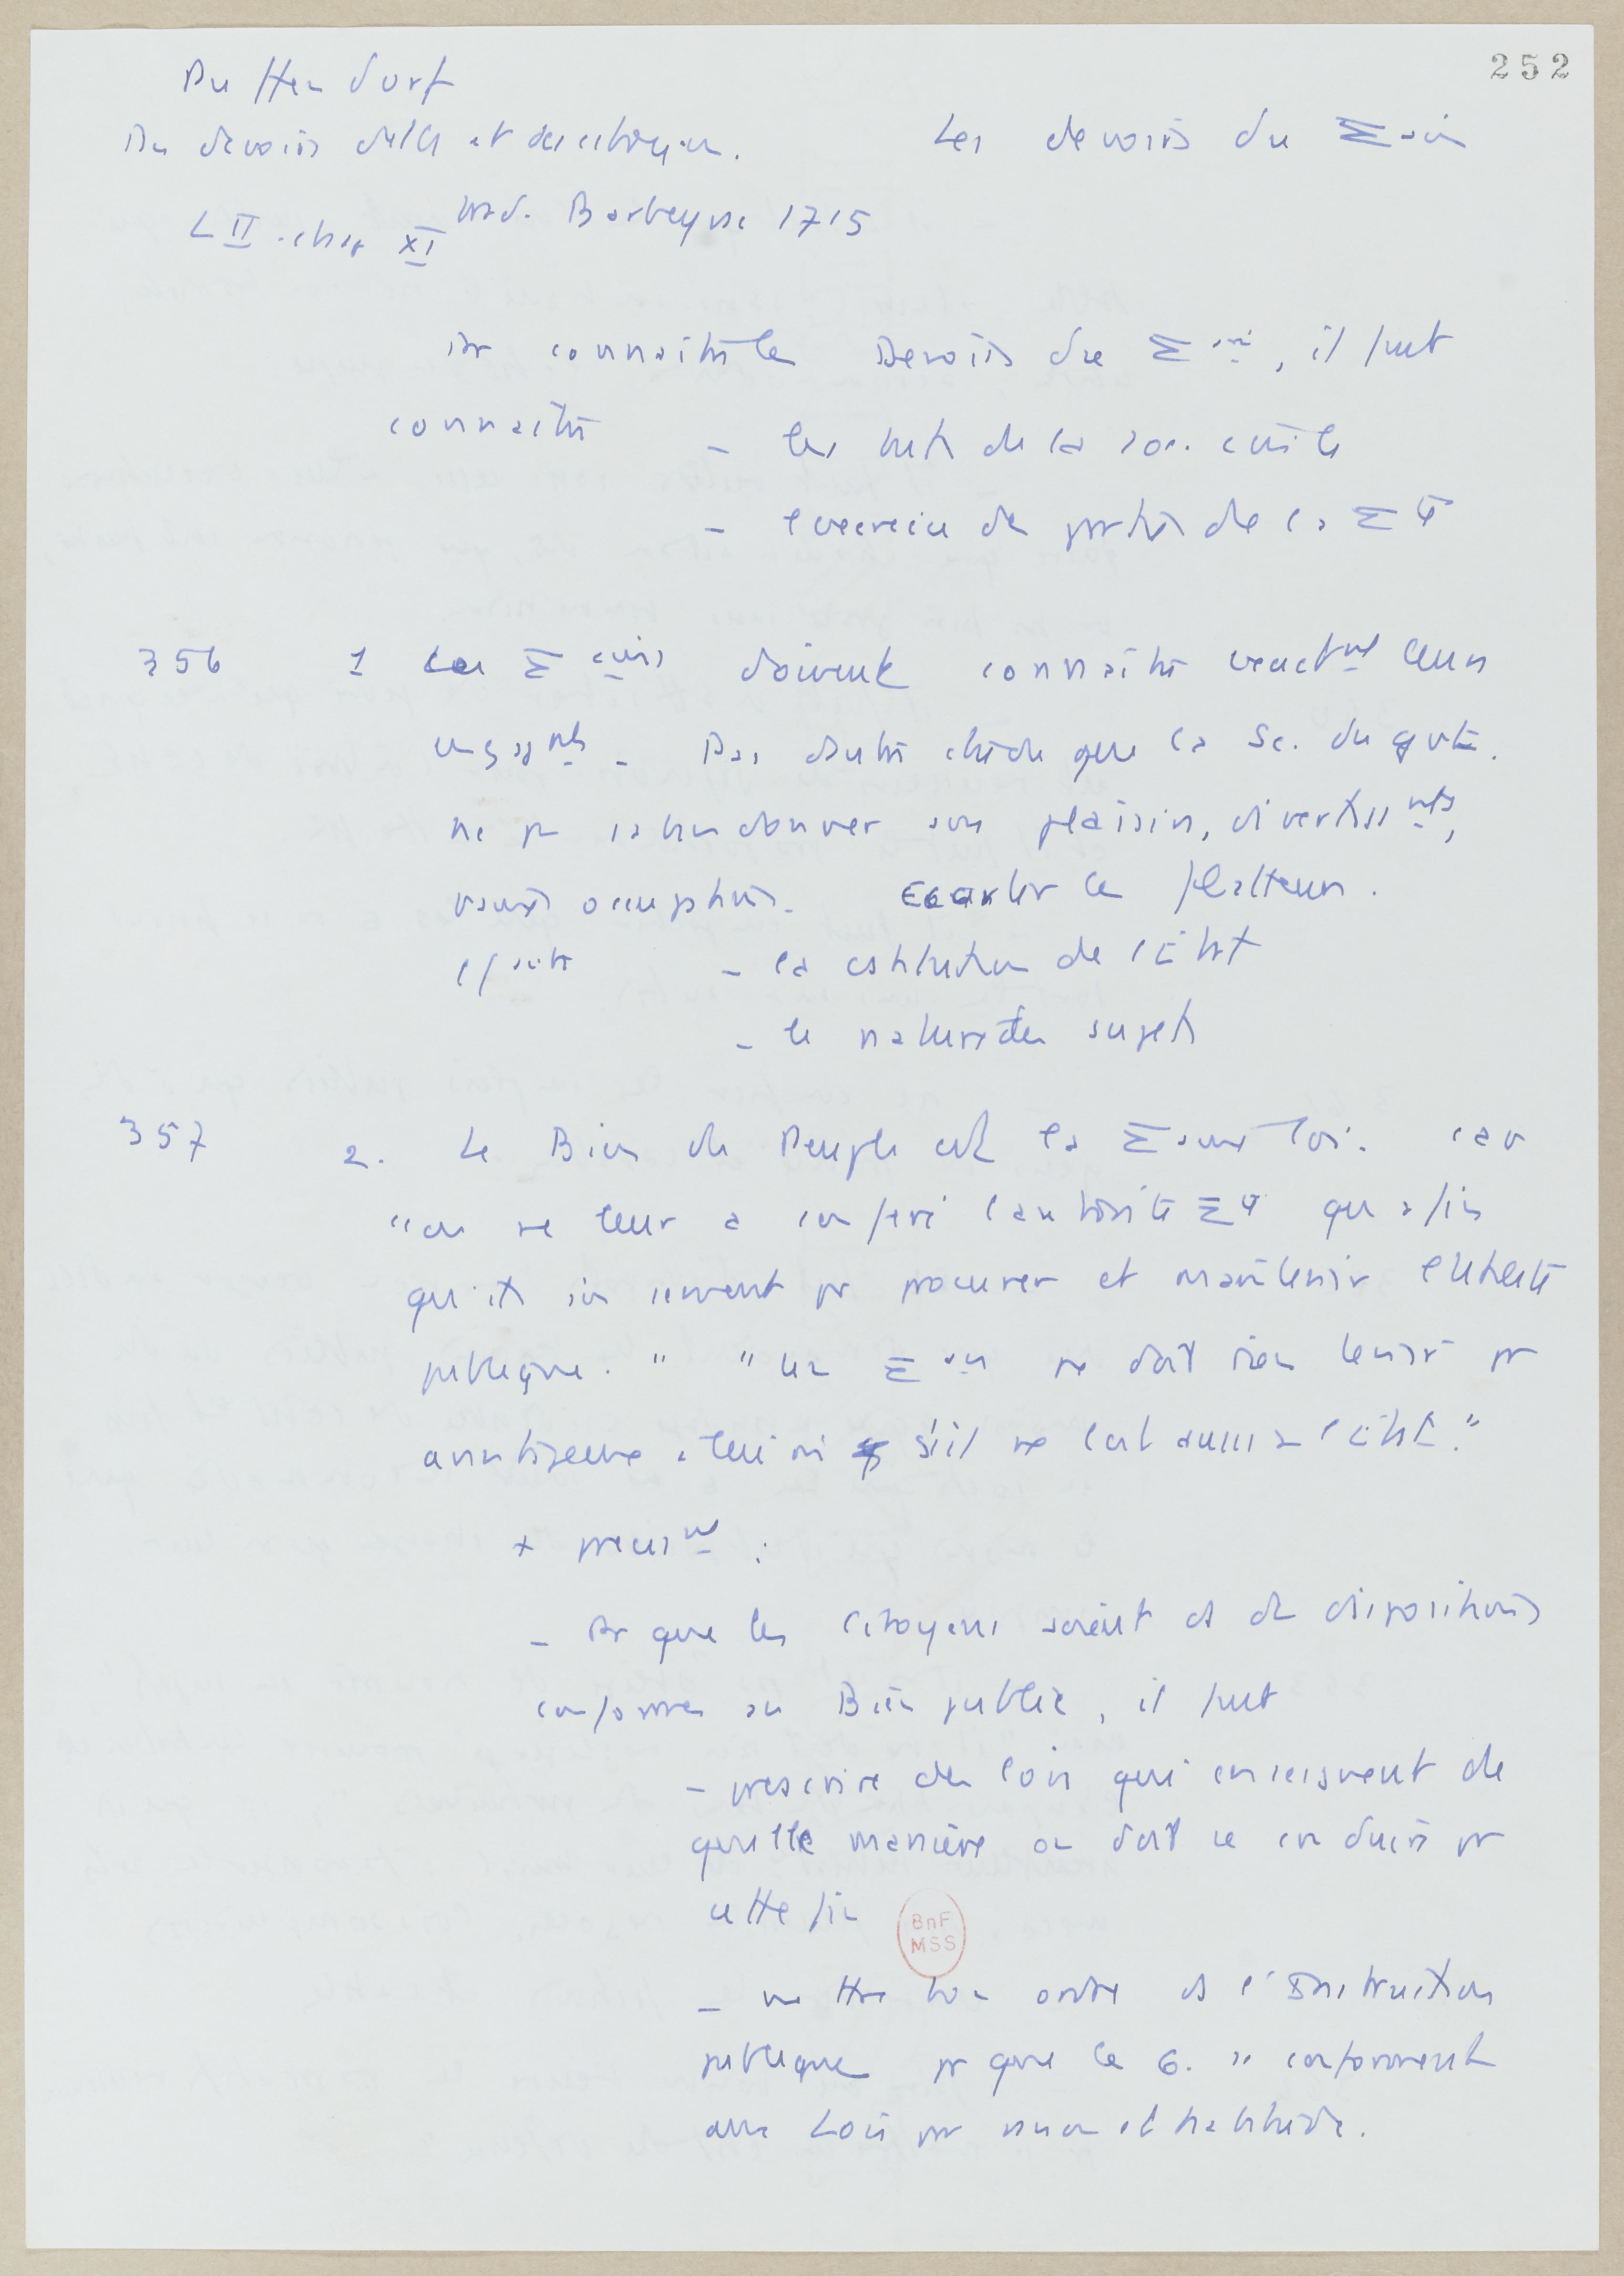 252
Puffendorf
Du devoirs de l'h et du citoyen. Les devoirs du Σain
trad. Barbeyrac 1715
L II. chap XI
Pr connaître les Devoirs du Σain, il faut
connaître - les buts de la soc. civile
- l'exercice des parties de la Σté
356 1 Les Σains doivent connaître exactmt leurs
engagmts. Pas d'autre étude que la Sc. du gvt.
ne pas s'abandonner aux plaisirs, divertissmts,
vaines occupations. Ecarter les flatteurs.
- la cstitution de l'État
- le naturel des sujets
357 2. Le Bien du Peuple est la Σaine loi. car
"on ne leur a conféré l'autorité Σe qu'afin
qu'ils s'en servent pr procurer et maintenir l'utilité
publique." "un Σain ne doit rien tenir pr
avantageux à lui-m s'il ne l'est aussi à l'État."
+ précismt :
- Pr que les Citoyens soient ds des dispositions
conformes au Bien public, il faut
- prescrire des lois qui enseignent de
quelle manière on doit se conduire pr
cette fin
- mettre bon ordre ds l'Instruction
publique pr que les C. se conforment
aux Lois par et habitude.
BnF
MSS